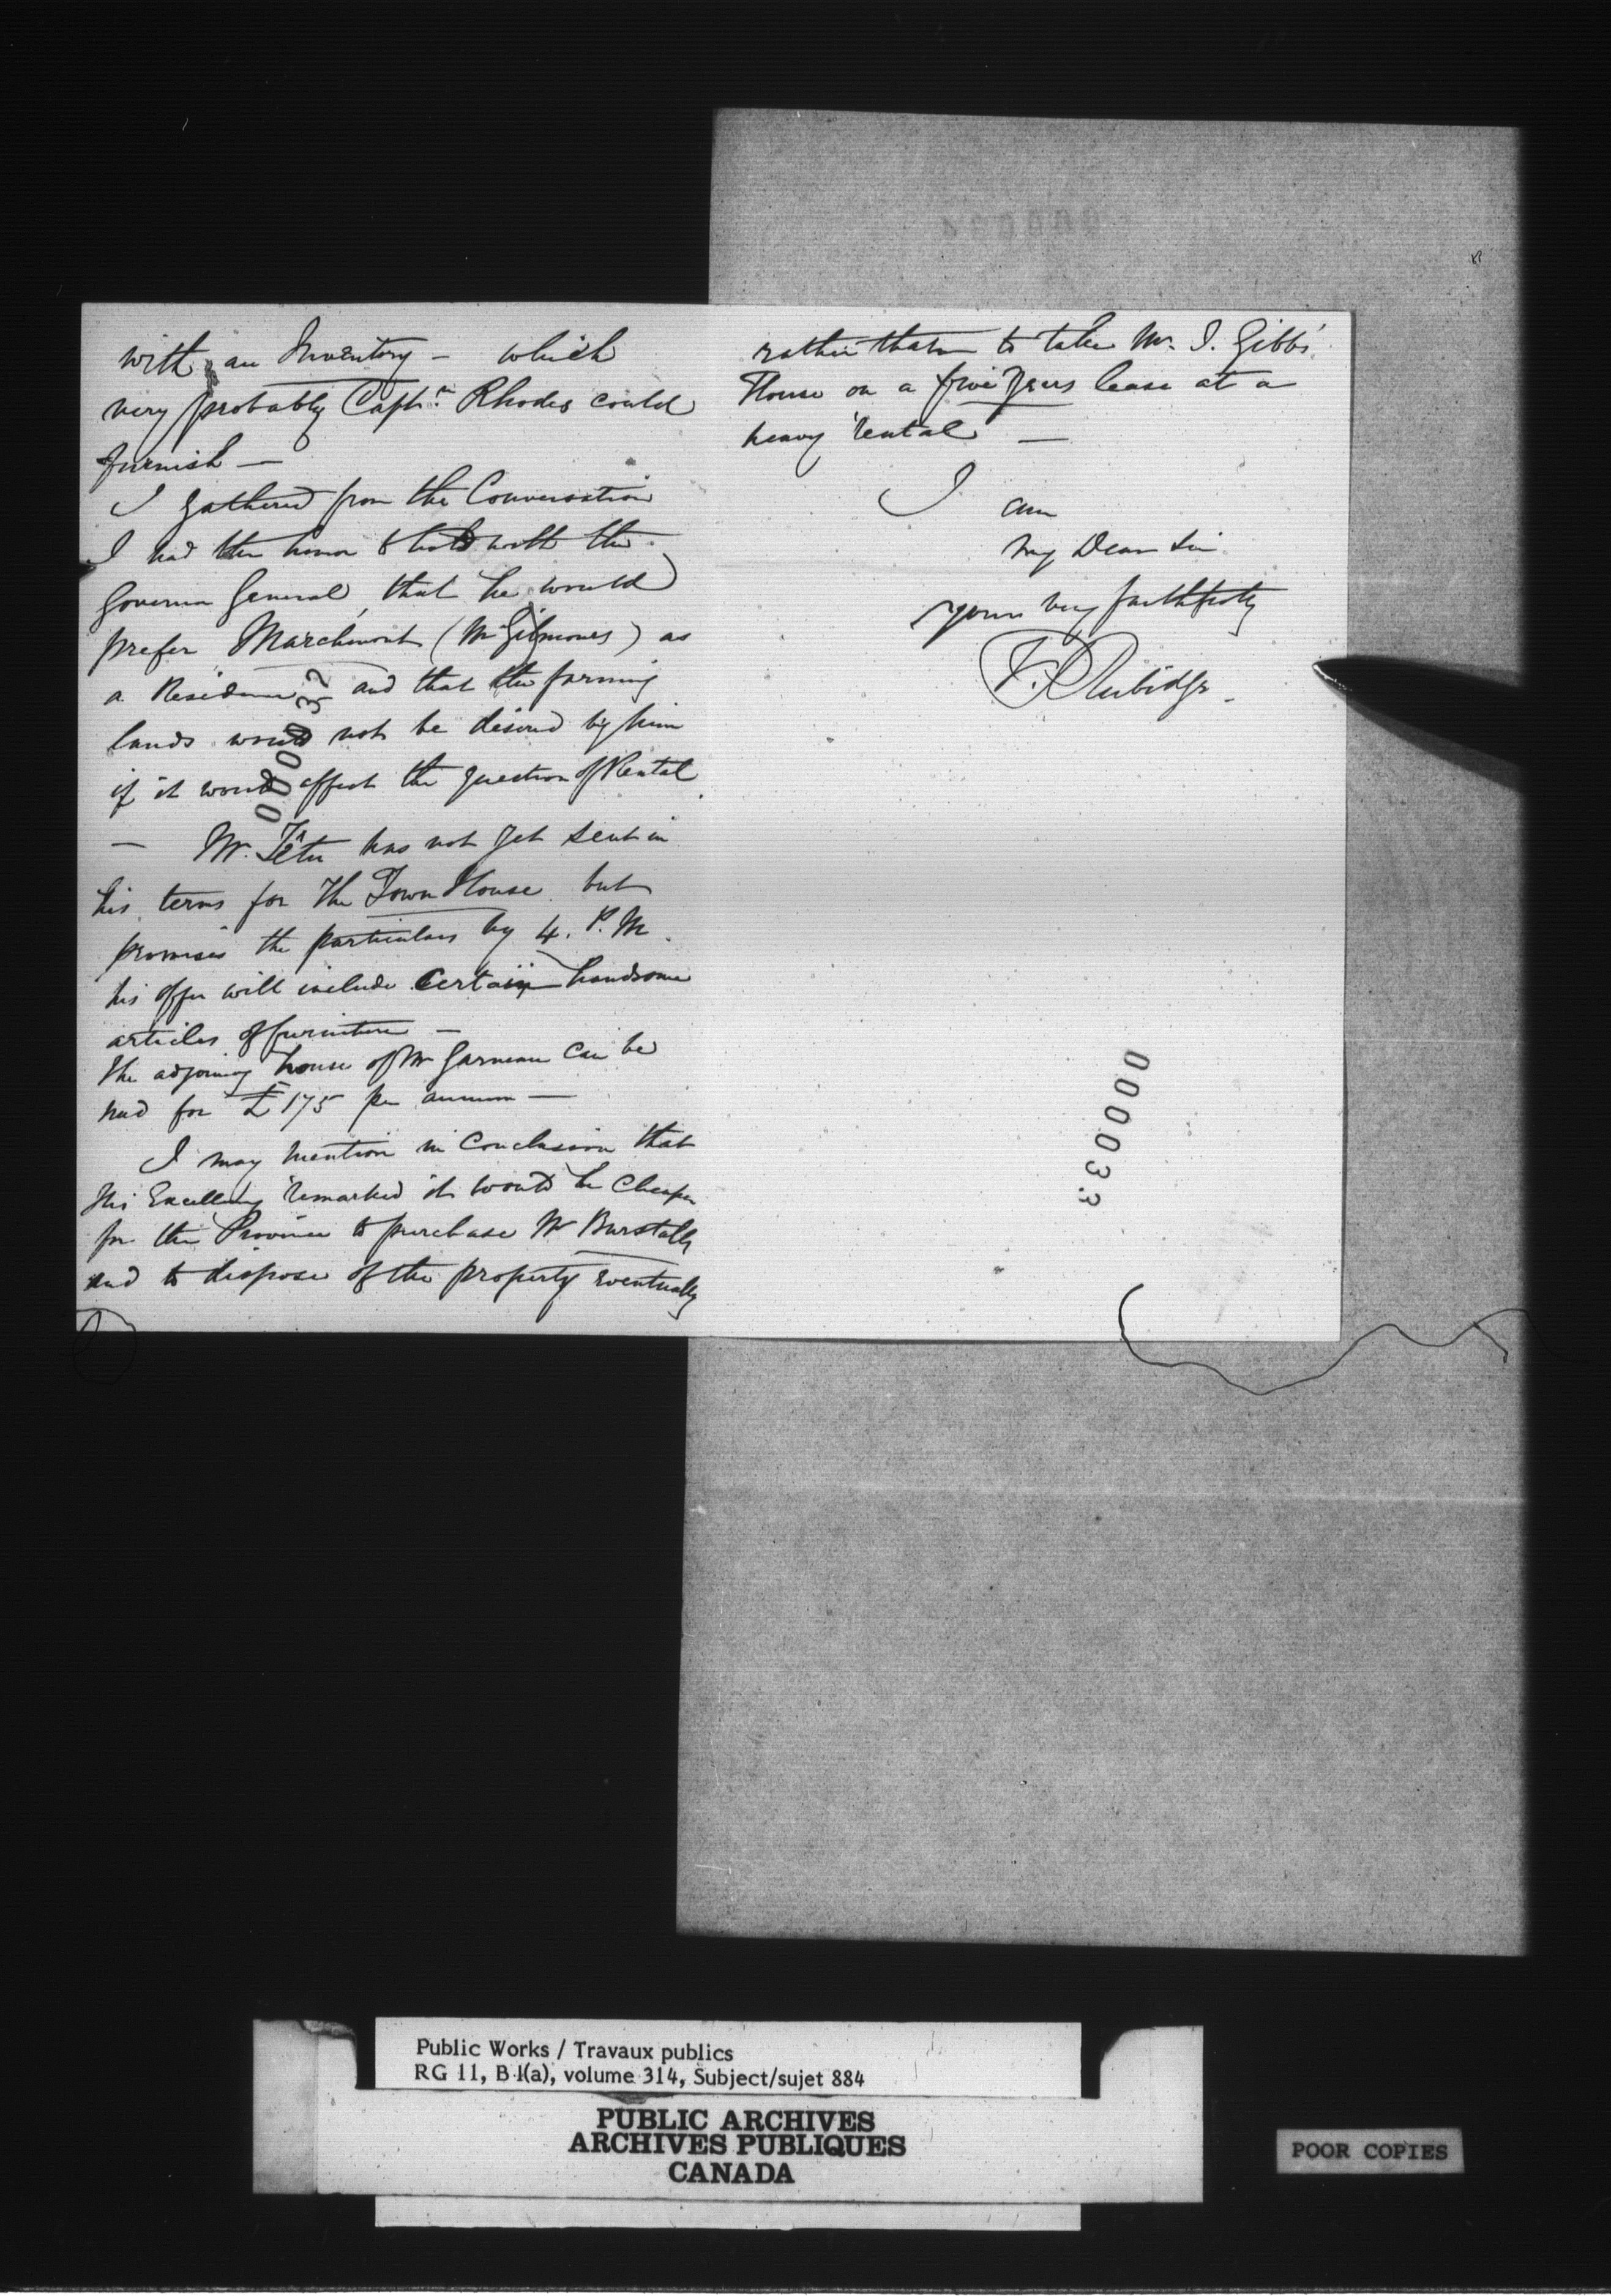 with an Inventory – which
very probably Captn. Rhodes could
furnish —
I gathered from the Conversation
I had the honor to hold with the
Governor General, that he would
prefer Marchmont (Mr Gilmours) as
a Residence and that the farming
lands would not be desired by him
if it would affect the question of Rental.
— Mr. Têtu has not yet sent in
his terms for the Town House but
promises the particulars by 4. P.M.
his offer will include certain handsome
articles of furniture —
The adjoining house of Mr Garneau can be
had for £175 per annum —
I may mention in Conclusion that
His Excellency remarked it would be cheaper
for the Province to purchase Mr Burstalls
and to dispose of the property eventually
000032
rather than to take Mr. J. Gibbs'
House on a five Years lease at a
heavy rental —
I am
My Dear Sir
yours very faithfully
F. P. Rubidge
000033
Public Works / Travaux publics
RG 11, B 1(a), volume 314, Subject/sujet 884
PUBLIC ARCHIVES
ARCHIVES PUBLIQUES
CANADA
POOR COPIES